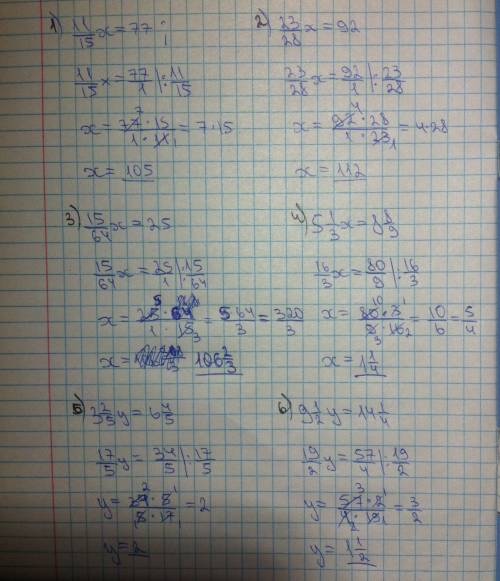 1) 11/15 x = 77
11/15 x = 77/1 | : 11/15
x = 77 · 15 / 1 · 11 = 7 · 15
x = 105
2) 23/28 x = 92
23/28 x = 92/1 | : 23/28
x = 92 · 28 / 1 · 23 = 4 · 28
x = 112
3) 15/64 x = 25
15/64 x = 25/1 | : 15/64
x = 25 · 64 / 1 · 15 = 5 64/3 = 320/3
x = 106 2/3
4) 5 1/3 x = 8 8/9
16/3 x = 80/9 | : 16/3
x = 80 · 3 / 9 · 16 = 10/6 = 5/4
x = 1 1/4
5) 3 2/5 y = 6 4/5
17/5 y = 34/5 | : 17/5
y = 34 · 5 / 5 · 17 = 2
y = 2
6) 9 1/2 y = 14 1/4
19/2 y = 57/4 | : 19/2
y = 57 · 2 / 4 · 19 = 3/2
y = 1 1/2